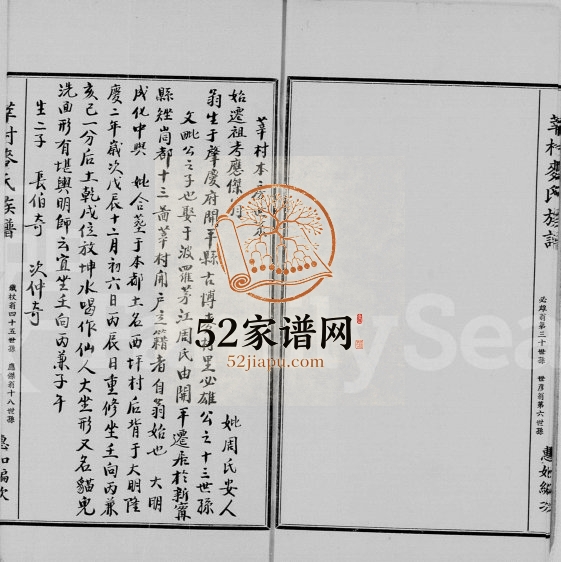 莘村麥氏族譜
必雄翁第三十世孫
世彥翁第六世孫
惠如編次
莘村本
始遷祖考應傑
妣周氏安人
翁生于肇慶府開平縣古博
里必雄公之十三世孫
文
公之子也娶于波羅芳江周氏由開平遷居於新寧
縣矬峝都十三啚莘村開戶立籍者自翁始也 大明
成化中與 妣合葬于本都土名西坪村后背于大明隆
慶二年歲次戊辰十二月初六日丙辰日重修坐壬向丙兼
亥巳一分后土乾戌位放坤水喝作仙人大坐形又名貓兒
洗面形有堪輿明師云宜坐壬向丙兼子午
生二子 長伯奇 次仲奇
莘村麥氏族譜
鐵杖翁四十五世孫
應傑翁十八世孫
惠如編次
52家谱网
52jiapu.com